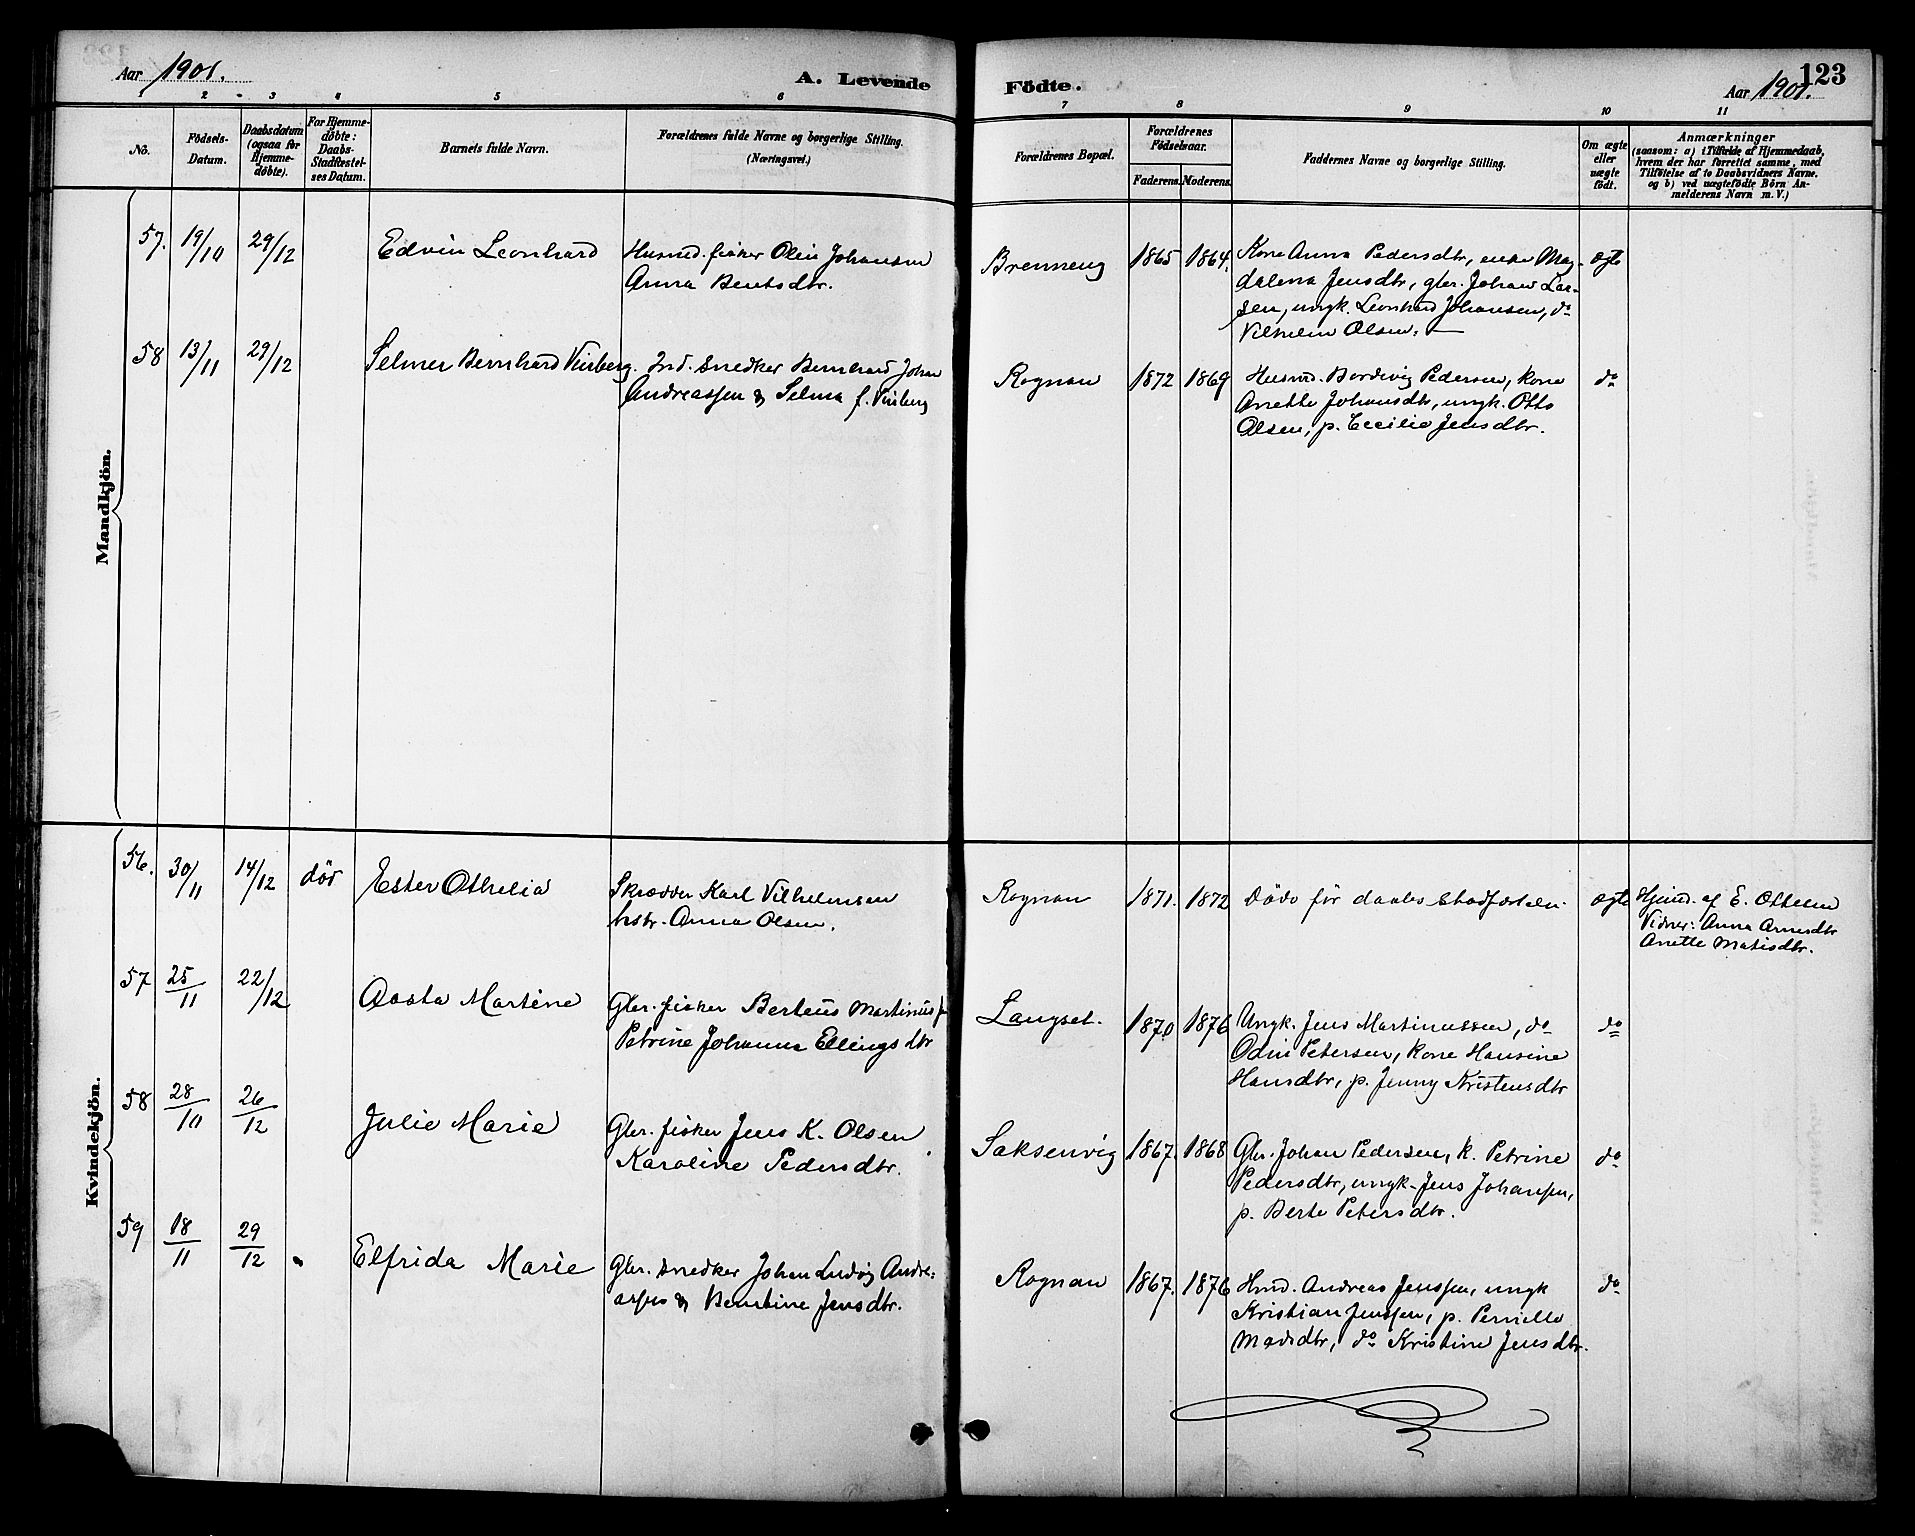 Aar 1901.
A. Levende
Födte.
Aar 1901.
123
1 2 3 4 5 6 7 8 9 10 11
No.
Födsels-
Datum.
Daabsdatum
(ogsaa for
Hjemme-
döbte).
For Hjemme-
döbte:
Daabs-
Stadfæstel-
ses Datum.
Barnets fulde Navn.
Forældrenes fulde Navne og borgerlige Stilling.
(Næringsvei.)
Forældrenes Bopæl.
Forældrenes
Födselsaar.
Faderens.
Moderens.
Faddernes Navne og borgerlige Stilling.
Om ægte
eller
uægte
födt.
Anmærkninger
(saasom: a) i Tilfælde af Hjemmedaab,
hvem der har forrettet samme, med
Tilföielse af to Daabsvidners Navne.
og b) ved uægtefödte Börn An-
melderens Navn m. V.)
Mandkjön.
57. 19/10 29/12 Edvin Leonhard
Husmd. fisker Olin Johansen
Anna Bentsdtr.
Brenneng 1865 1864.
Kone Anna Pedersdtr, enke Mag-
dalena Jensdtr, gbr. Johan Lar-
sen, ungk. Leonhard Johansen, do
Vilhelm Olsen.
ægte
58 13/11 29/12 Selmer Bernhard Vinberg.
Ind. snedker Bernhard Johan
Andreassen & Selma f. Vinberg
Rognan 1872 1869
Husmd. Bordevig Pedersen, kone
Anette Johansdtr, ungk. Otto
Olsen, p. Cecilie Jensdtr.
do
Kvindekjön.
56. 30/11 14/12 död Ester Othelia
Skrædder Karl Vilhelmsen
hstr. Anna Olsen.
Rognan 1871. 1872 Döde för daabs stadfæstelsen.
ægte
Hjmd. af E. Ottesen
Vidner: Anna Arnesdtr
Anette Matisdtr.
57 25/11 22/12 Aasta Martine
Gbr. fisker Berteus Martinus
Petrine Johanna Ellingsdtr
Langset. 1870 1876
Ungk. Jens Martinussen, do
Odin Petersen, kone Hansine
Hansdtr, p. Jenny Kristensdtr
do
58 28/10 26/12 Julie Marie
Gbr. fisker Jens K. Olsen
Karoline Pedersdtr.
Saksenvig 1867. 1868
Gbr. Johan Pedersen, k. Petrine
Pedersdtr, ungk. Jens Johansen,
p. Berte Petersdtr.
do
59 18/11 29/12 Elfrida Marie
Gbr. snedker Johan Ludvig Andre-
assen & Berntine Jensdtr.
Rognan 1867. 1876
Hmd. Andreas Jenssen, ungk
Kristian Jenssen, p. Pernille
Madsdtr, do Kristine Jensdtr.
do